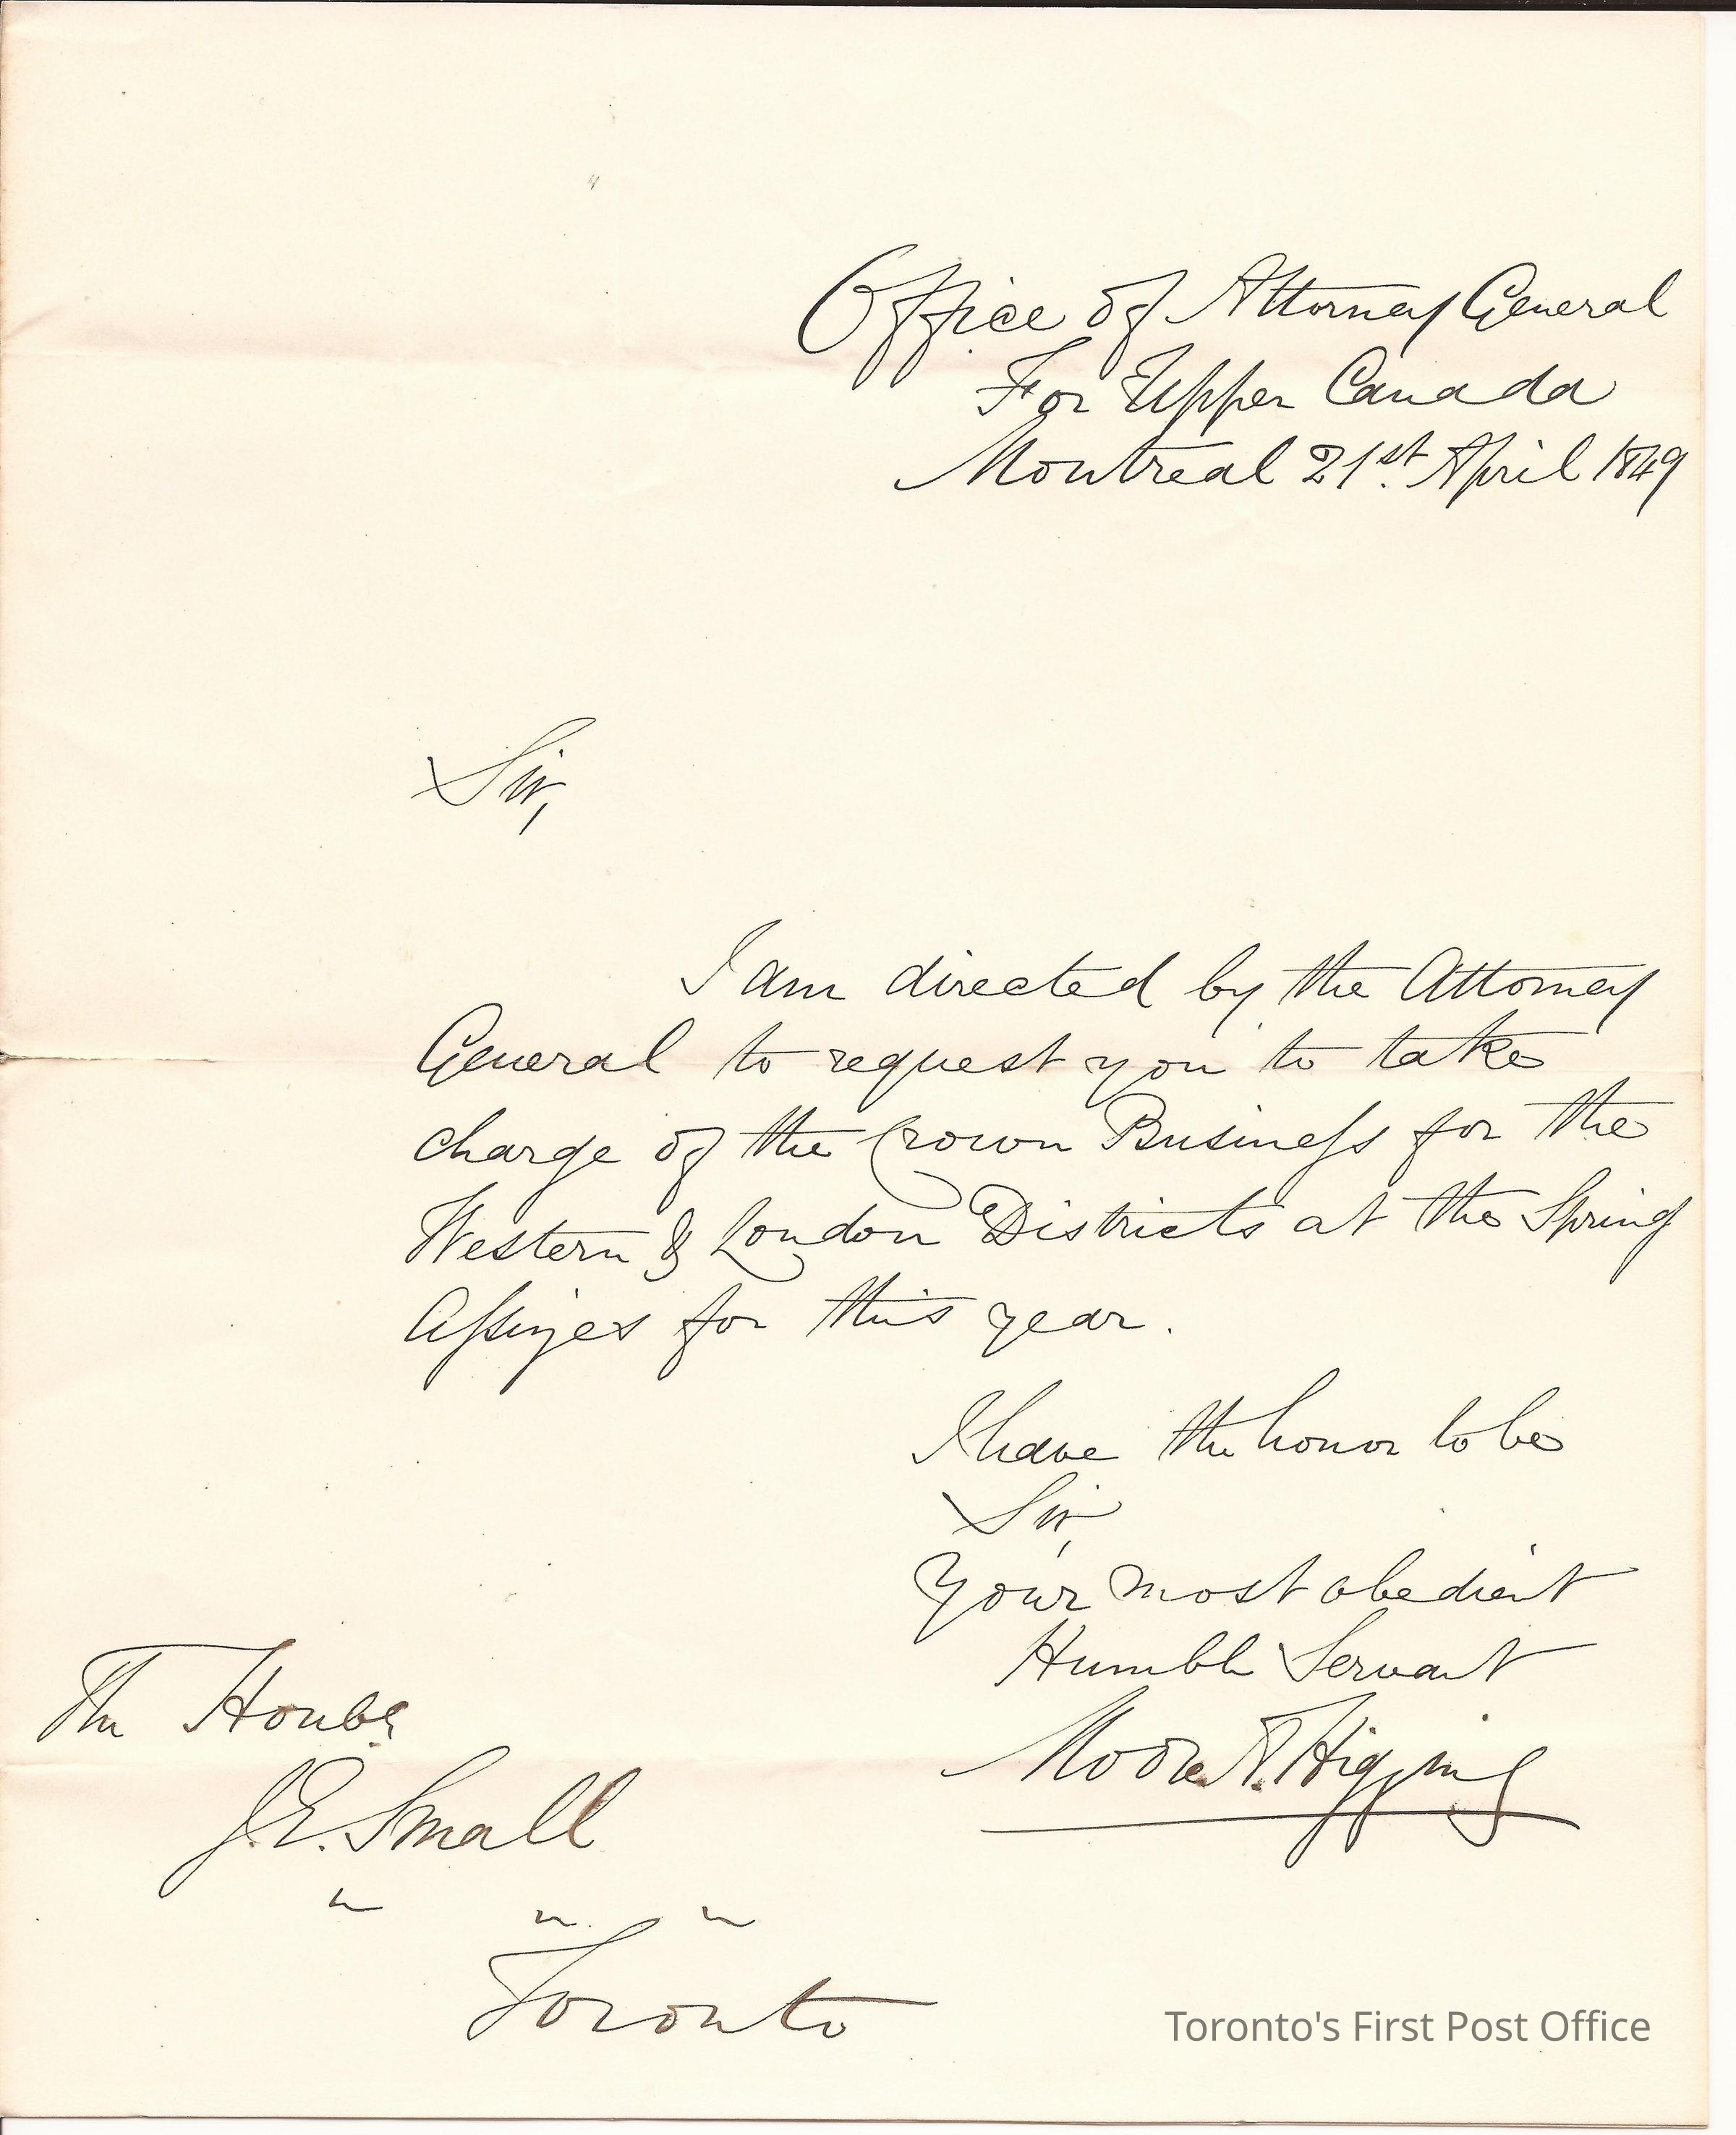 Office of Attorney General
For Upper Canada
Montreal 21st. April 1849
Sir,
I am directed by the Attorney
General to request you to take
charge of the Crown Business for the
Western & London Districts at the Spring
Assizes for this year.
I have the honor to be
Sir,
Your most obedient
Humble Servant
Moore A. Higgins
The Honble
J. E. Small
" " "
Toronto
Toronto's First Post Office